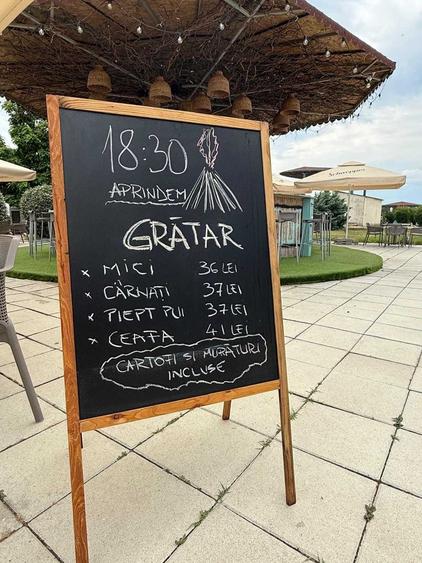 18:30
APRINDEM
GRĂTAR
x MICI 36 LEI
x CÂRNAȚI 37 LEI
x PIEPT PUI 37 LEI
x CEAFA 41 LEI
CARTOFI SI MURĂTURI
INCLUSE
Schweppes